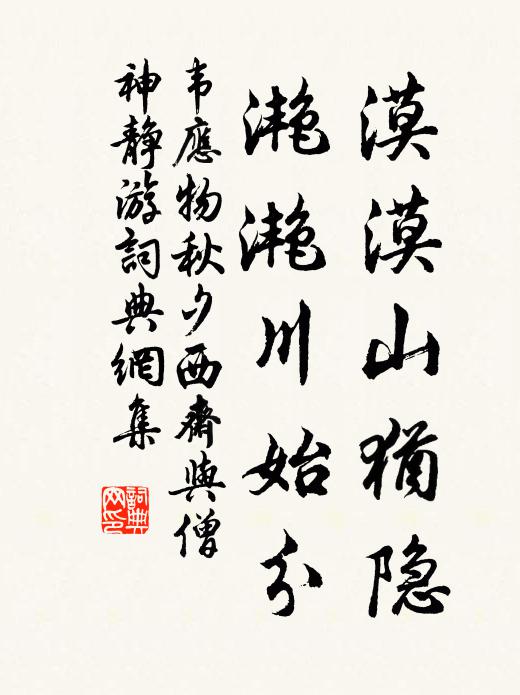 漠漠山犹隐
滟滟川始分
韦應物秋夕西齋與僧
神靜游詞典網集
詞典
网印